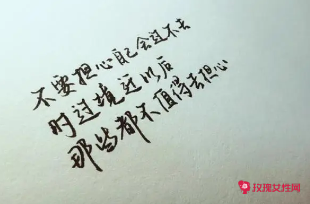 不要担心自己会过不去
时过境迁以后
那些都不值得去担心
玫瑰女性网